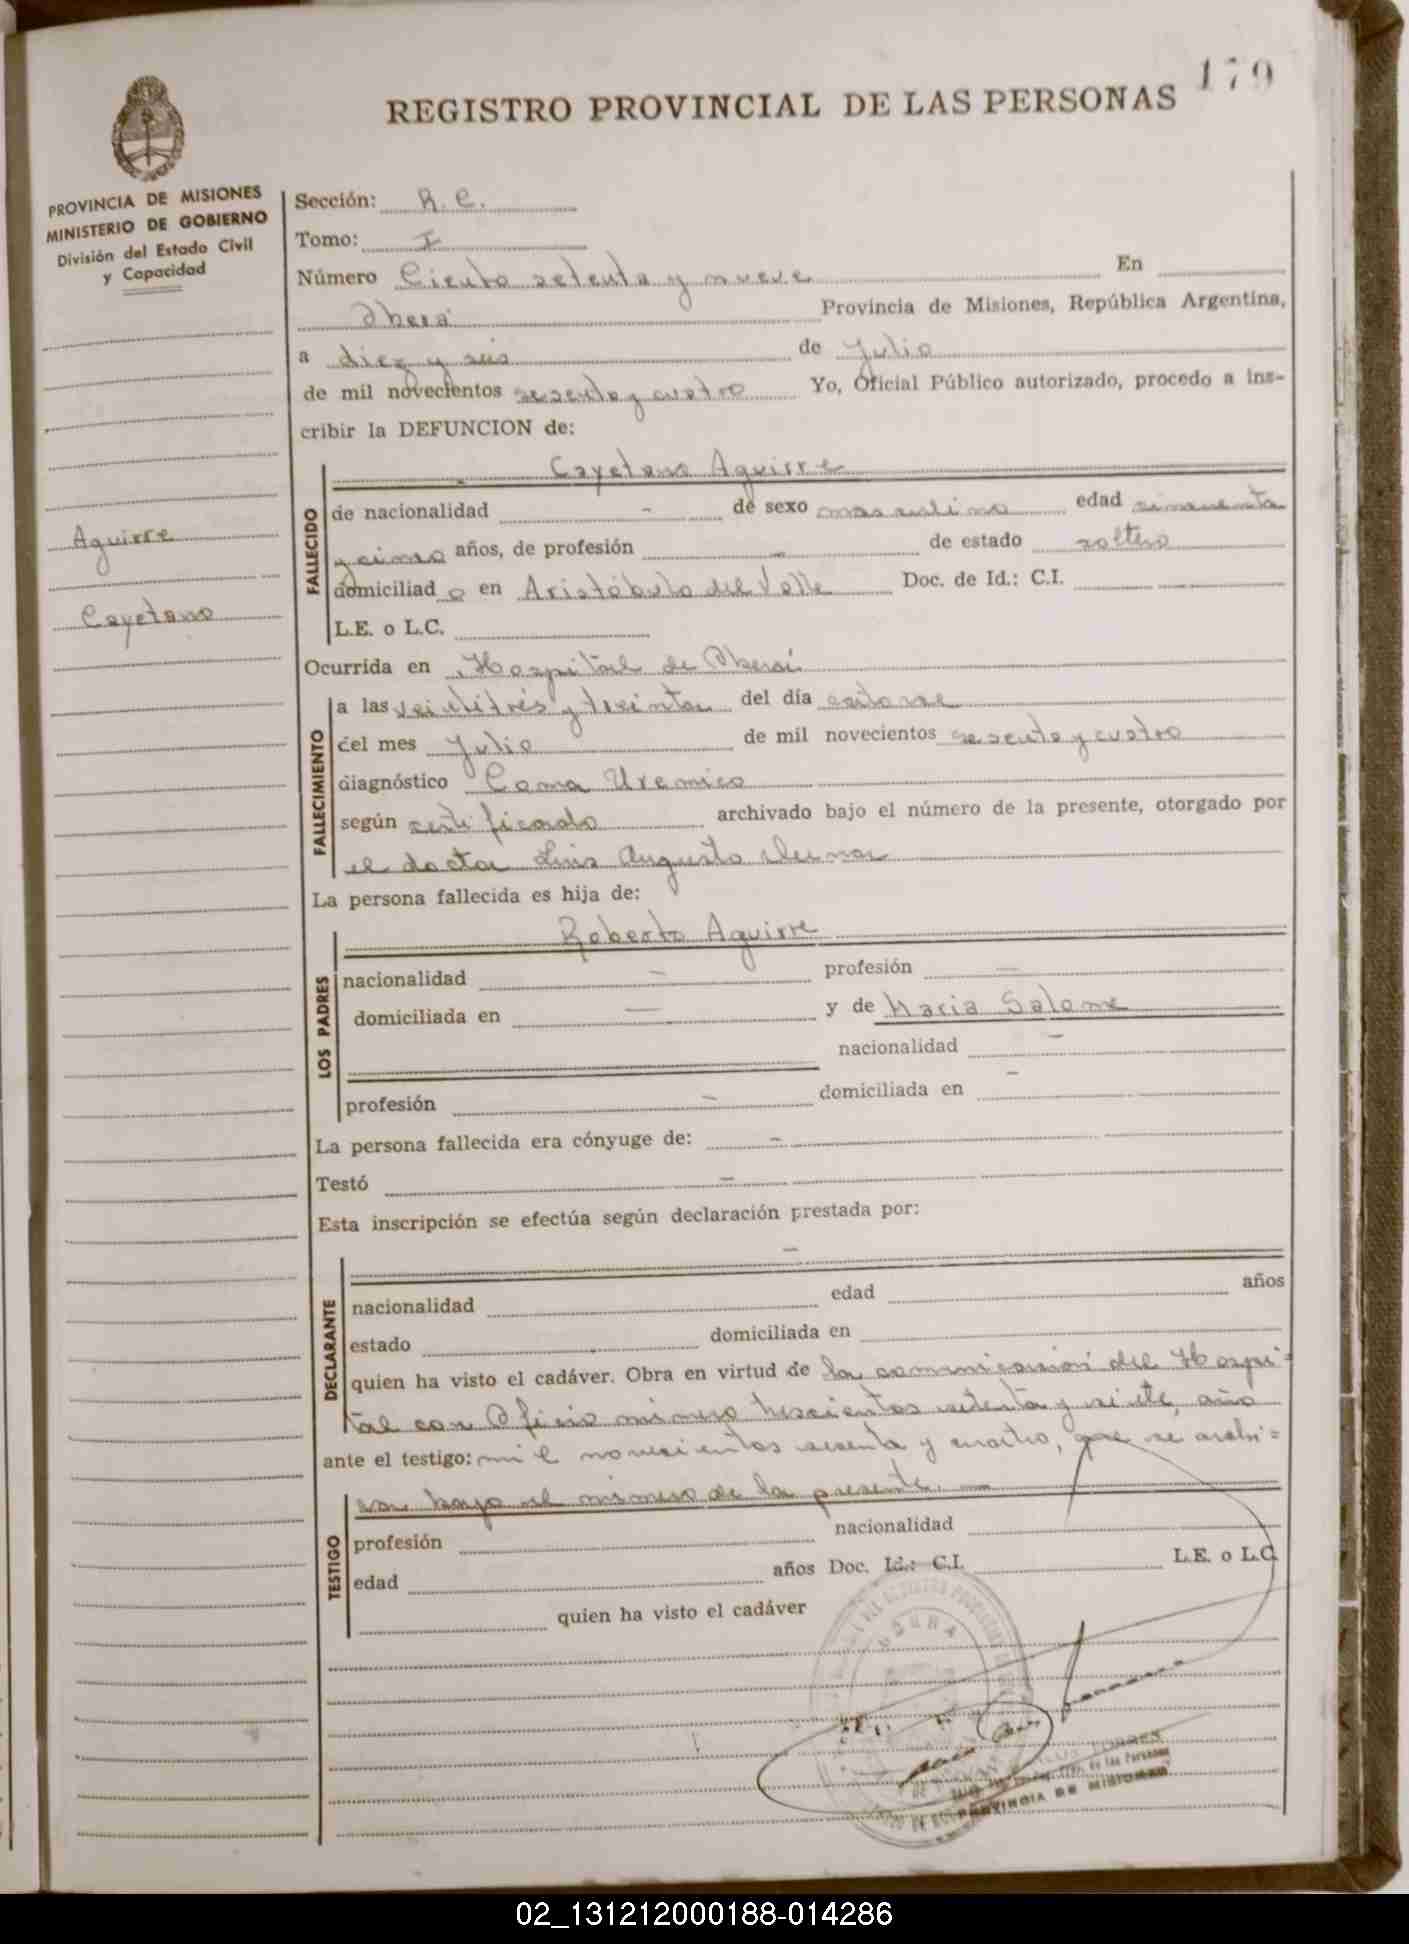 179
REGISTRO PROVINCIAL DE LAS PERSONAS
PROVINCIA DE MISIONES
MINISTERIO DE GOBIERNO
División del Estado Civil
y Capacidad
Aguirre
Cayetano
Sección: R. C.
Tomo: I
Número Ciento setenta y nueve En
Oberá Provincia de Misiones, República Argentina,
a diez y seis de Julio
de mil novecientos sesenta y cuatro Yo, Oficial Público autorizado, procedo a ins-
cribir la DEFUNCION de:
FALLECIDO
Cayetano Aguirre
de nacionalidad - de sexo masculino edad cincuenta
y cinco años, de profesión - de estado soltero
domiciliad o en Aristóbulo del Valle Doc. de Id.: C.I.
L.E. o L.C.
Ocurrida en Hospital de Oberá
FALLECIMIENTO
a las veintitrés y treinta del día catorce
del mes Julio de mil novecientos sesenta y cuatro
diagnóstico Coma Uremico
según certificado archivado bajo el número de la presente, otorgado por
el doctor Luis Augusto
La persona fallecida es hija de:
LOS PADRES
Roberto Aguirre
nacionalidad — profesión —
domiciliada en — y de Maria Salome
nacionalidad -
profesión - domiciliada en -
La persona fallecida era cónyuge de: -
Testó -
Esta inscripción se efectúa según declaración prestada por:
DECLARANTE
-
nacionalidad edad años
estado domiciliada en
quien ha visto el cadáver. Obra en virtud de la comunicación del Hospi-
tal con Oficio número trescientos setenta y siete, año
ante el testigo: mil novecientos sesenta y cuatro, que se archi-
va bajo el número de la presente. —
TESTIGO
profesión nacionalidad
edad años Doc. Id.: C.I. L.E. o L.C.
quien ha visto el cadáver
OBERA
TORRES
de las Personas
PROVINCIA DE MISIONES
02_131212000188-014286